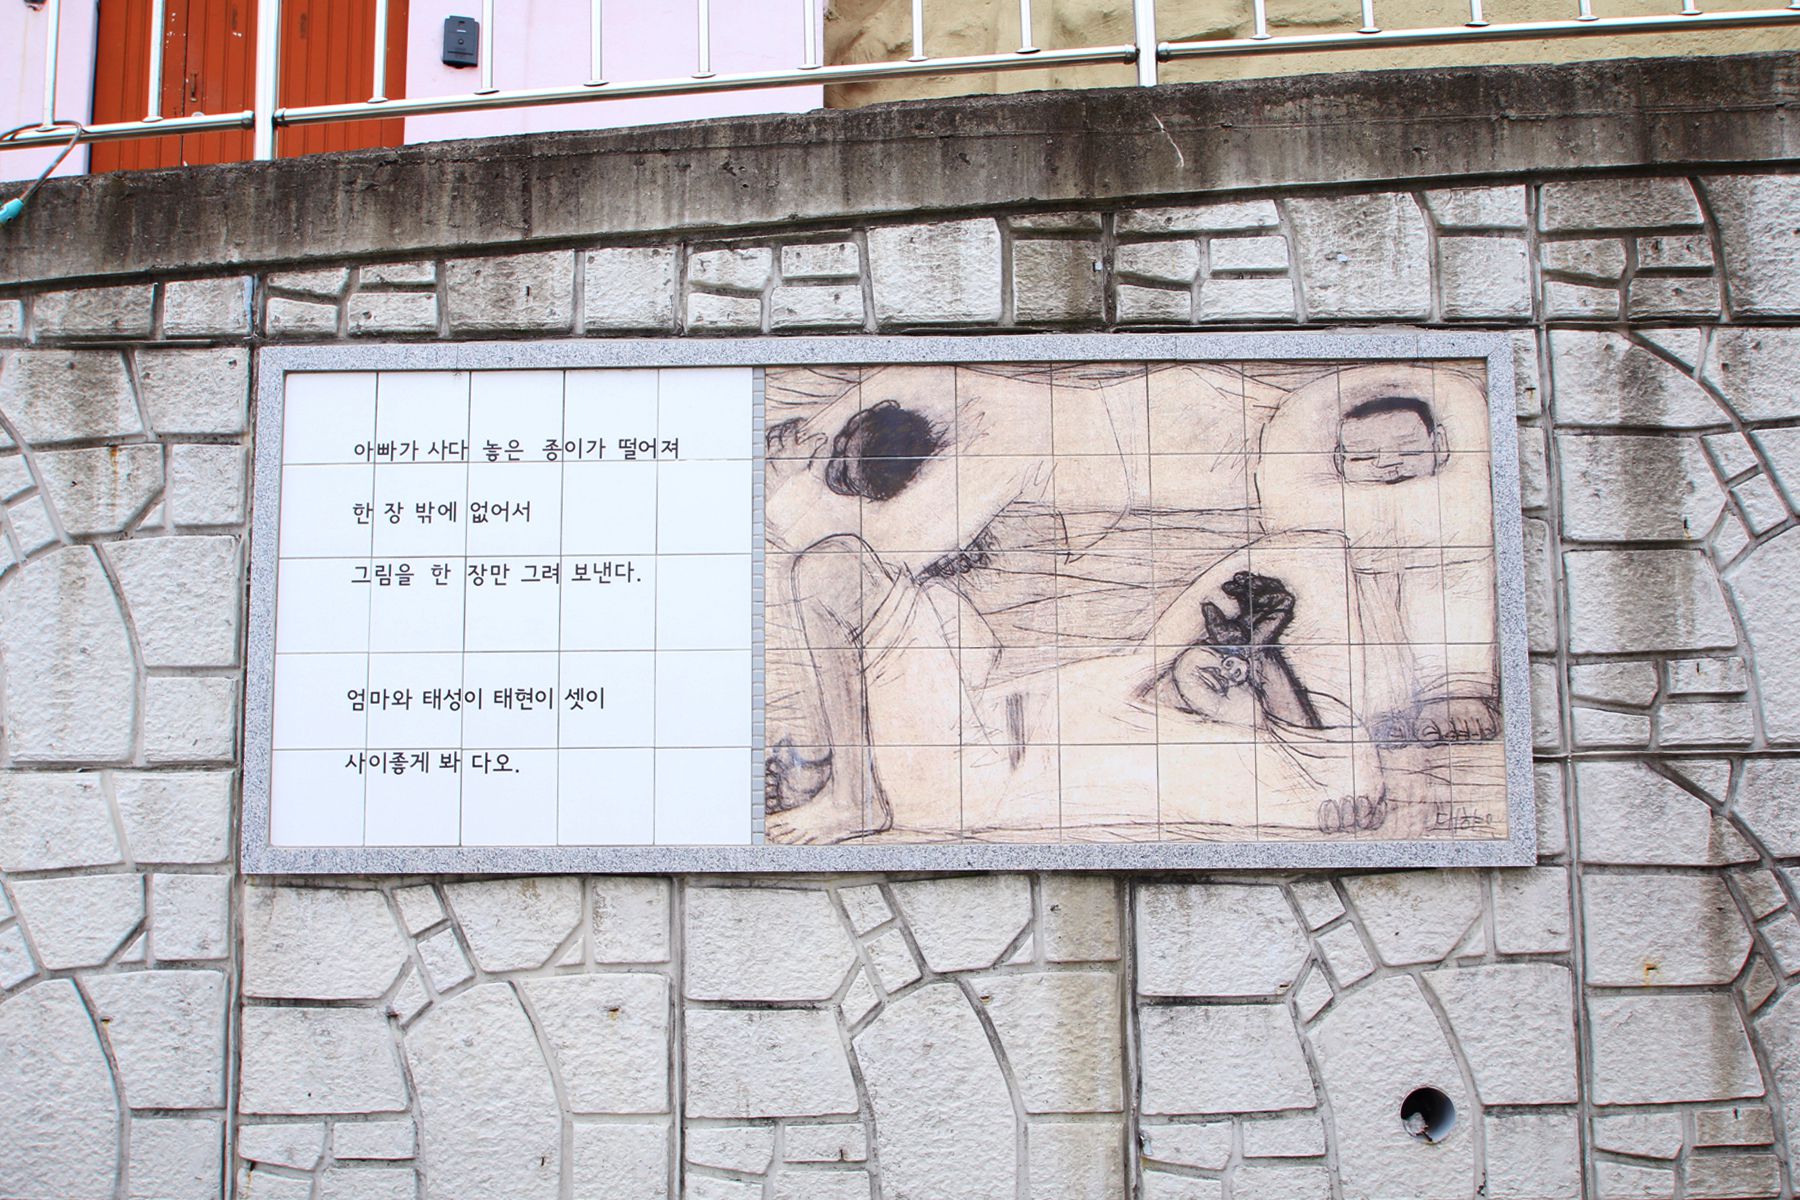 아빠가 사다 놓은 종이가 떨어져
한 장 밖에 없어서
그림을 한 장만 그려 보낸다.
엄마와 태성이 태현이 셋이
사이좋게 봐 다오.